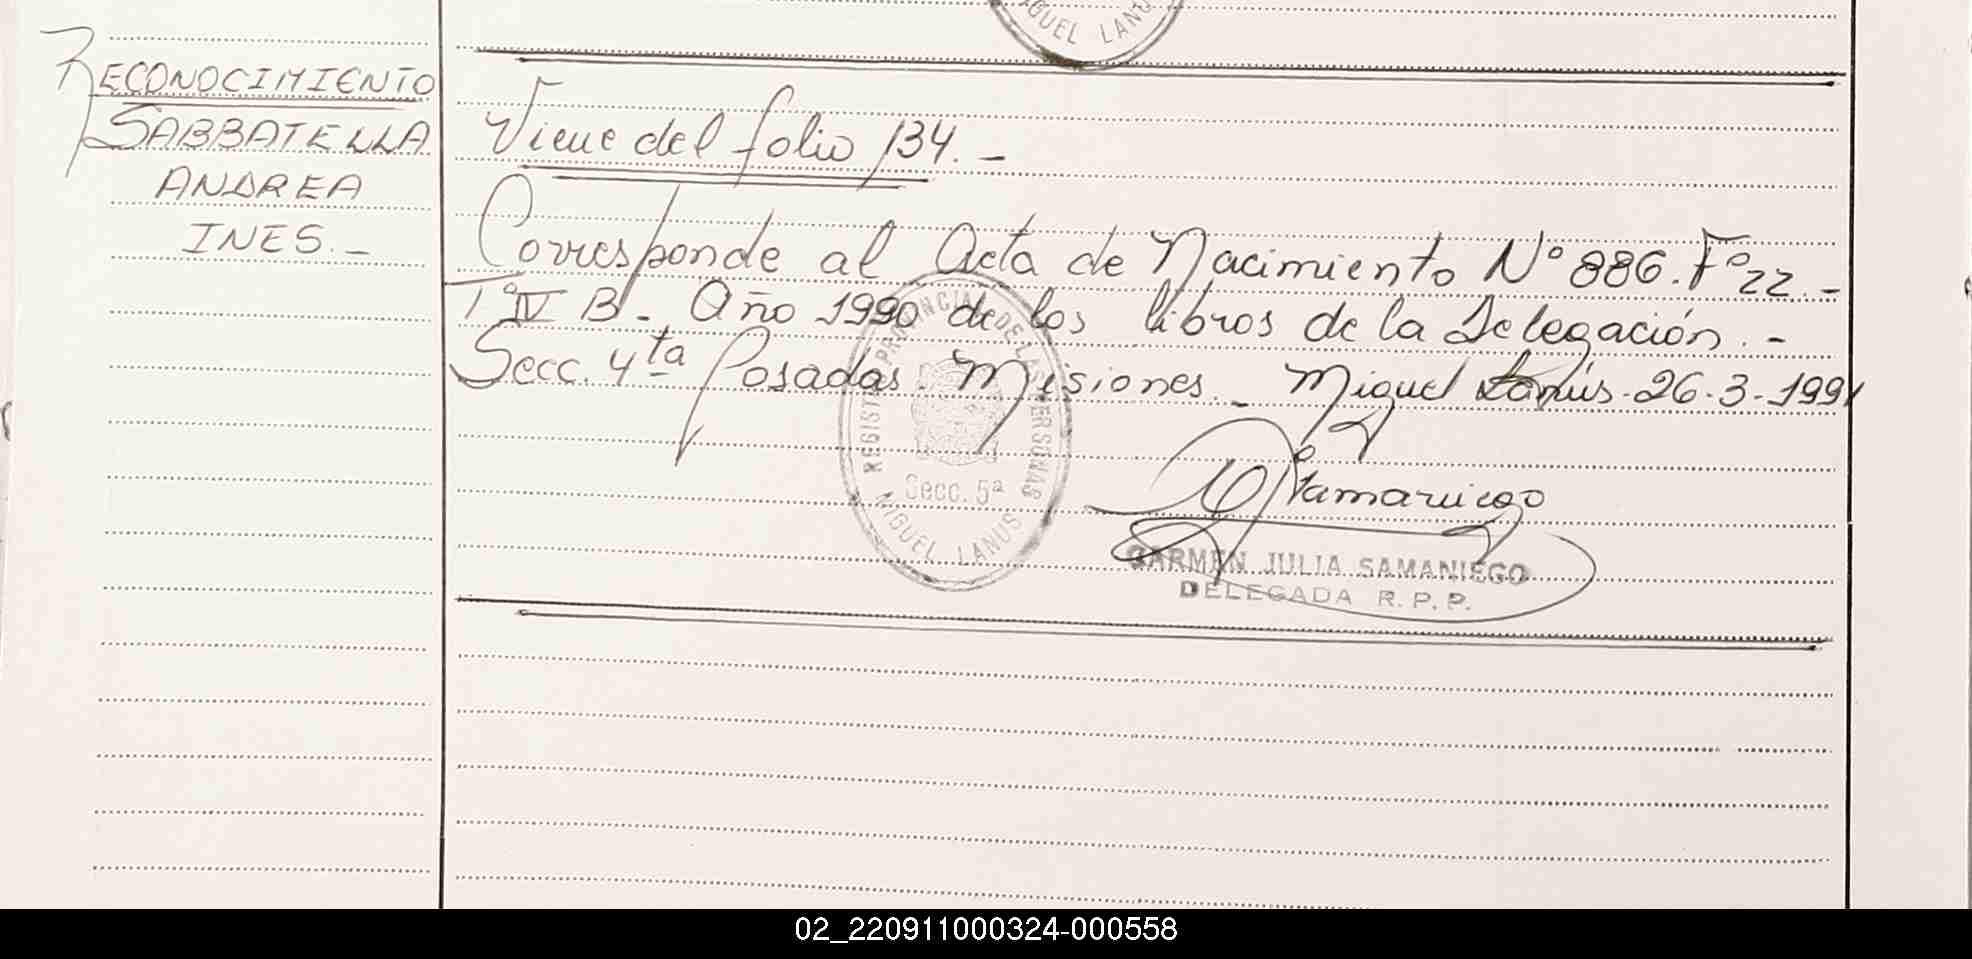 MIGUEL LANUS
RECONOCIMIENTO
SABBATELLA
ANDREA
INES._
Viene del folio 134._
Corresponde al Acta de Nacimiento Nº 886. Fº 22._
Tº IV B_ Año 1990 de los libros de la Delegación._
Secc. 4ta Posadas. Misiones._ Miguel Lanús. 26.3.1991
REGISTRO PROVINCIAL DE LAS PERSONAS
Secc. 5ª
MIGUEL LANUS
CJSamaniego
CARMEN JULIA SAMANIEGO
DELEGADA R.P.P.
02_220911000324-000558